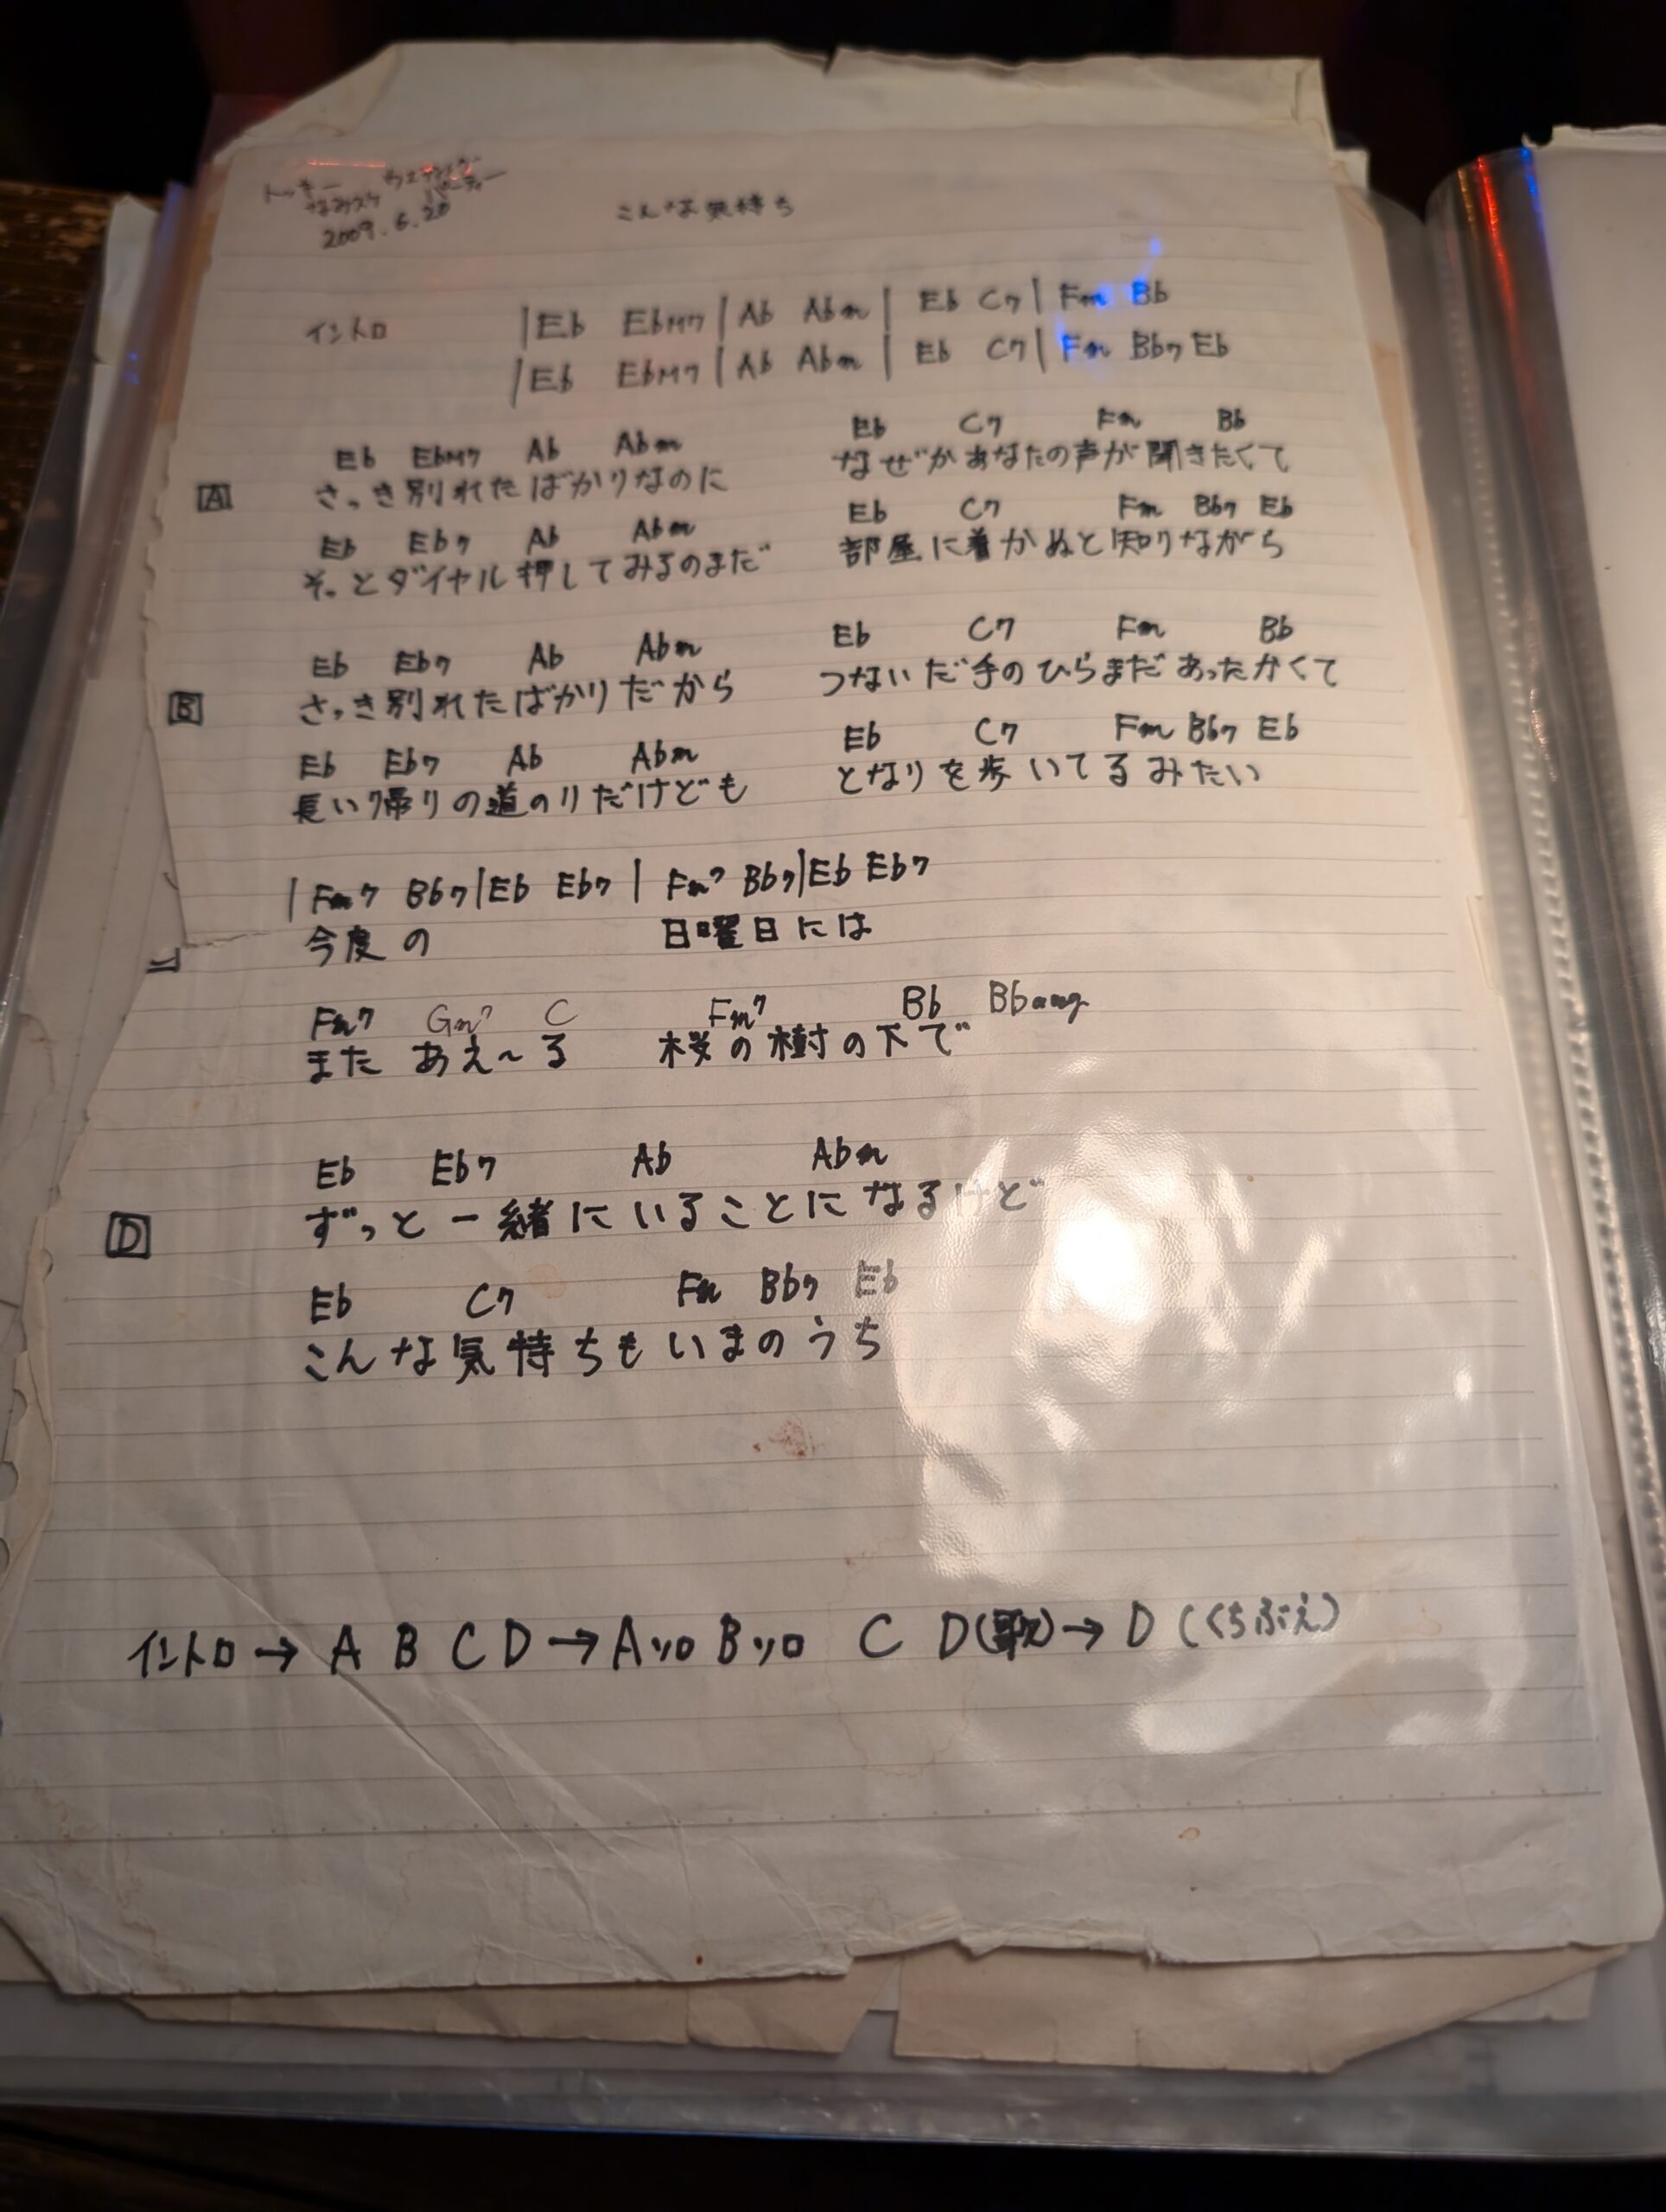 トッキー
なみへい ウェディング
パーティー
2009.6.20
こんな気持ち
イントロ |Eb EbM7|Ab Abm| Eb C7| Fm Bb
|Eb EbM7|Ab Abm| Eb C7| Fm Bb7 Eb
Eb EbM7 Ab Abm Eb C7 Fm Bb
A さっき別れたばかりなのに なぜかあなたの声が聞きたくて
Eb Eb7 Ab Abm Eb C7 Fm Bb7 Eb
そっとダイヤル押してみるのまだ 部屋に着かぬと知りながら
Eb Eb7 Ab Abm Eb C7 Fm Bb
B さっき別れたばかりだから つないだ手のひらまだあったかくて
Eb Eb7 Ab Abm Eb C7 Fm Bb7 Eb
長い帰りの道のりだけども となりを歩いてるみたい
|Fm7 Bb7|Eb Eb7| Fm7 Bb7|Eb Eb7
今度の 日曜日には
Fm7 Gm7 C Fm7 Bb Bbaug
また あえ~る 桜の樹の下で
Eb Eb7 Ab Abm
D ずっと一緒にいることになるけど
Eb C7 Fm Bb7 Eb
こんな気持ちもいまのうち
イントロ→ A B C D→Aソロ Bソロ C D(歌)→ D(くちぶえ)